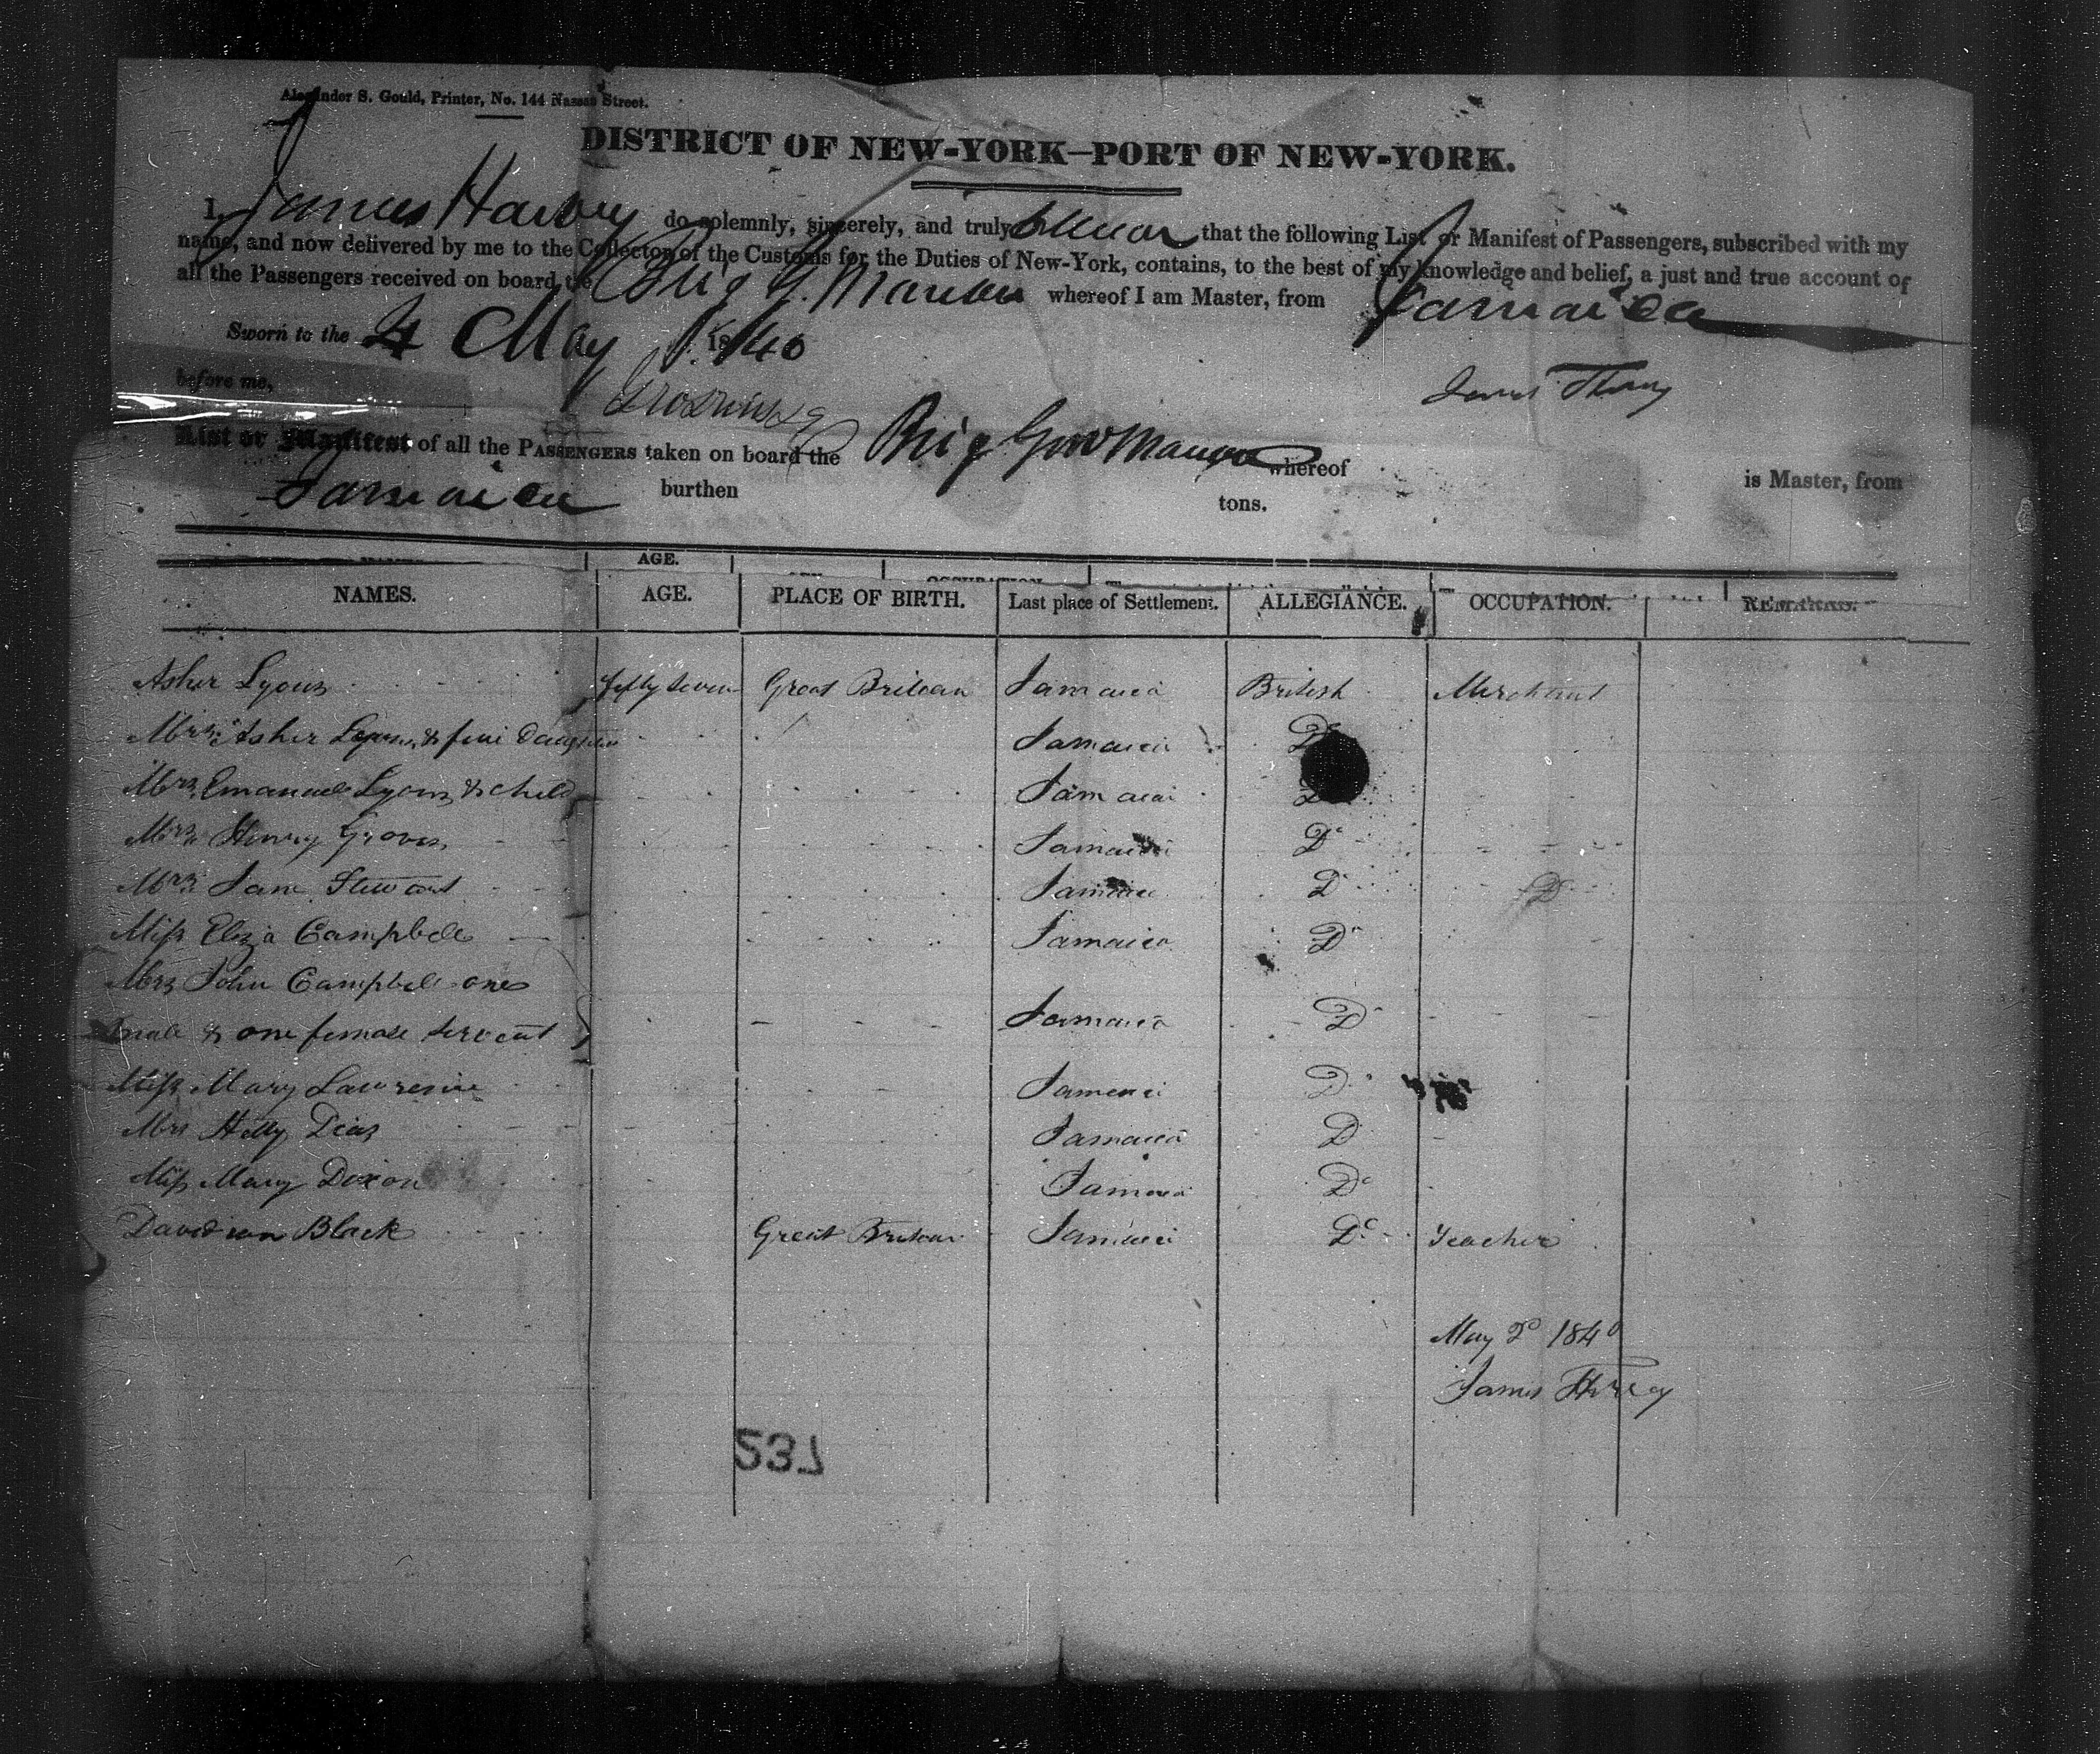 Alexander S. Gould, Printer, No. 144 Nassau Street.
DISTRICT OF NEW-YORK—PORT OF NEW-YORK.
I, James Harvey do solemnly, sincerely, and truly swear that the following List or Manifest of Passengers, subscribed with my
name, and now delivered by me to the Collector of the Customs for the Duties of New-York, contains, to the best of my knowledge and belief, a just and true account of
all the Passengers received on board the Brig G. whereof I am Master, from Jamaica
Sworn to the 4 May 1840
before me, James
List or Manifest of all the PASSENGERS taken on board the Brig Gov whereof is Master, from
Jamaica burthen tons.
AGE.
OCCUPATION
NAMES. AGE. PLACE OF BIRTH. Last place of Settlement. ALLEGIANCE. OCCUPATION. REMARKS.
Asher Lyons fifty seven Great Britain Jamaica British Merchant
Mrs Asher Lyons & Jamaica Do
Mrs Emanuel Lyons & child Jamaica D
Mrs Henry Groves Jamaica Do
Mrs Jane Stewart Jamaica D D
Miss Eliza Campbell Jamaica Do
Mrs John Campbell one
male & one female servant Jamaica D
Miss Mary Lawrence Jamaica D
Mrs Dias Jamaica D
Miss Mary Dixon Jamaica Do
Davidson Black Great Britain Jamaica Do Teacher
May 2d 1840
James Harvey
237